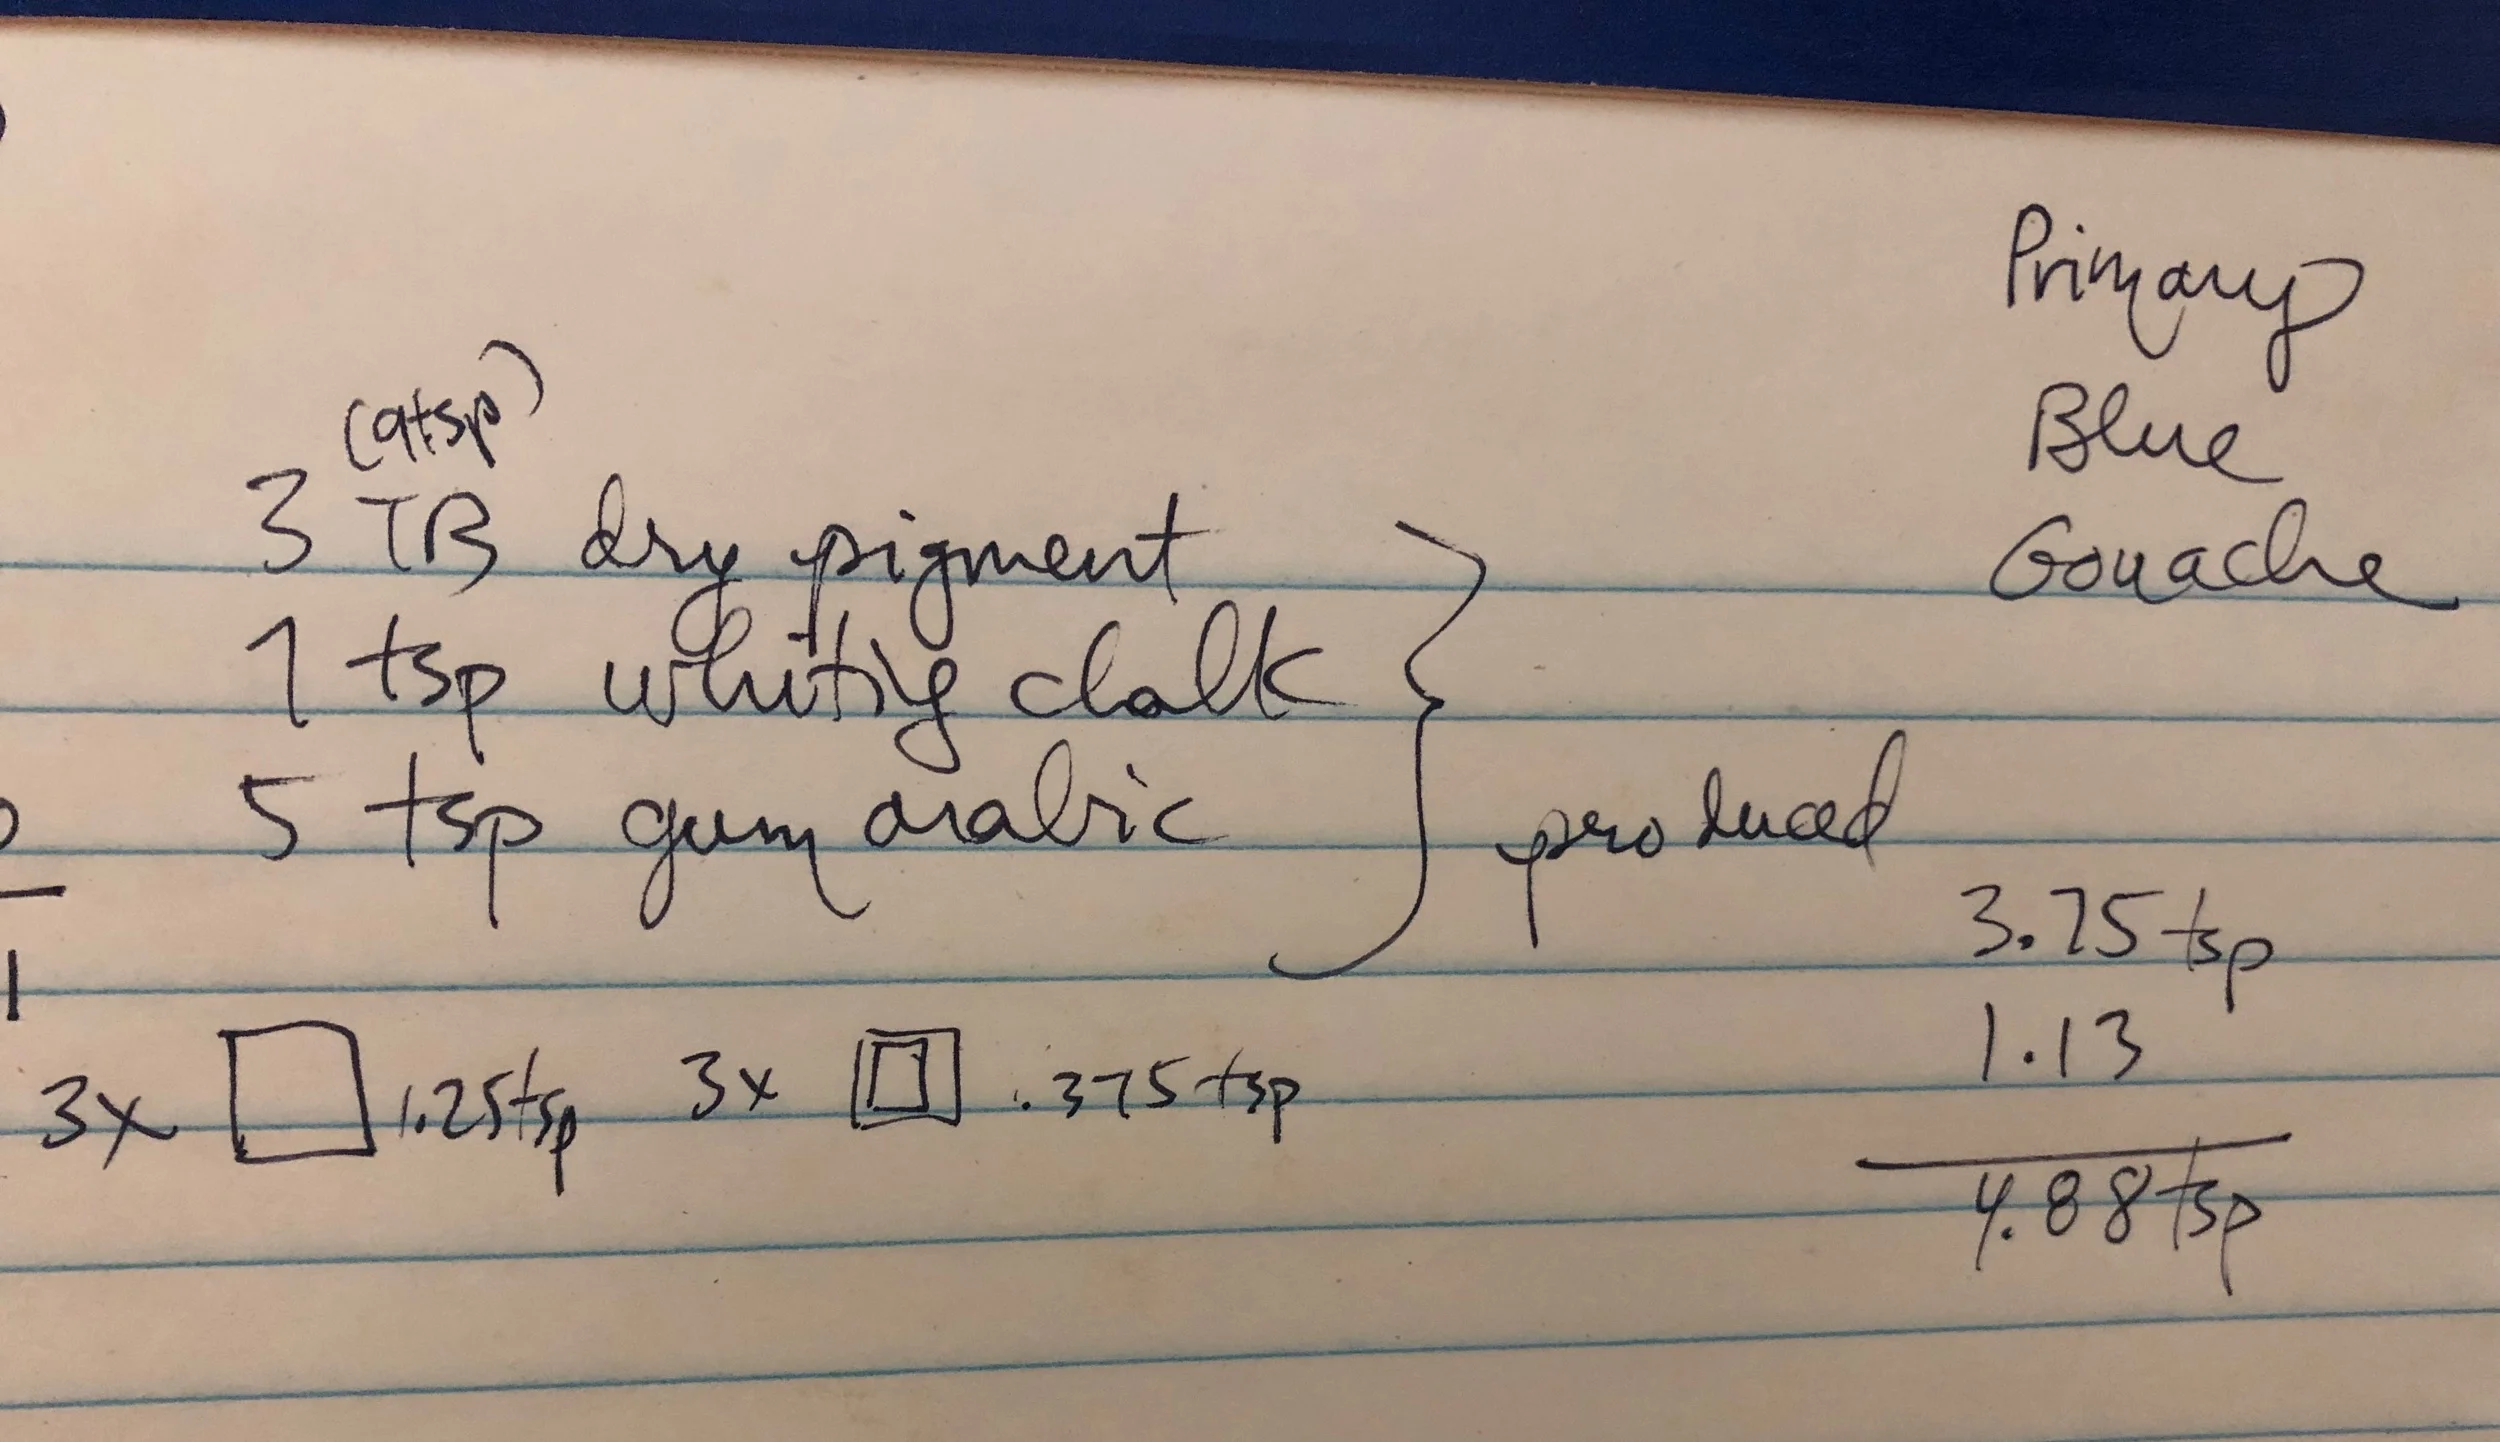 Primary
Blue
Gouache
(9tsp)
3 TB dry pigment
1 tsp whiting chalk
5 tsp gum arabic
produced
3.75 tsp
1.13
4.88 tsp
3x 1.25tsp 3x .375 tsp
1